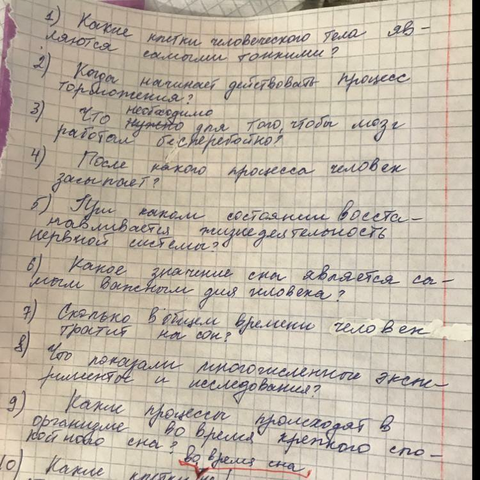 1) Какие клетки человеческого тела яв-
ляются самыми тонкими?
2) Когда начинает действовать процесс
торможения?
3) Что необходимо
нужно для того, чтобы мозг
работал бесперебойно?
4) После какого процесса человек
засыпает?
5) При каком состоянии восста-
навливается жизнедеятельность
нервной системы?
6) Какое значение сна является са-
мым важным для человека?
7) Сколько в общем времени человек
тратит на сон?
8) Что показали многочисленные экспе-
рименты и исследования?
9) Какие процессы происходят в
организме во время крепкого спо-
койного сна?
во время сна
10) Какие клетки